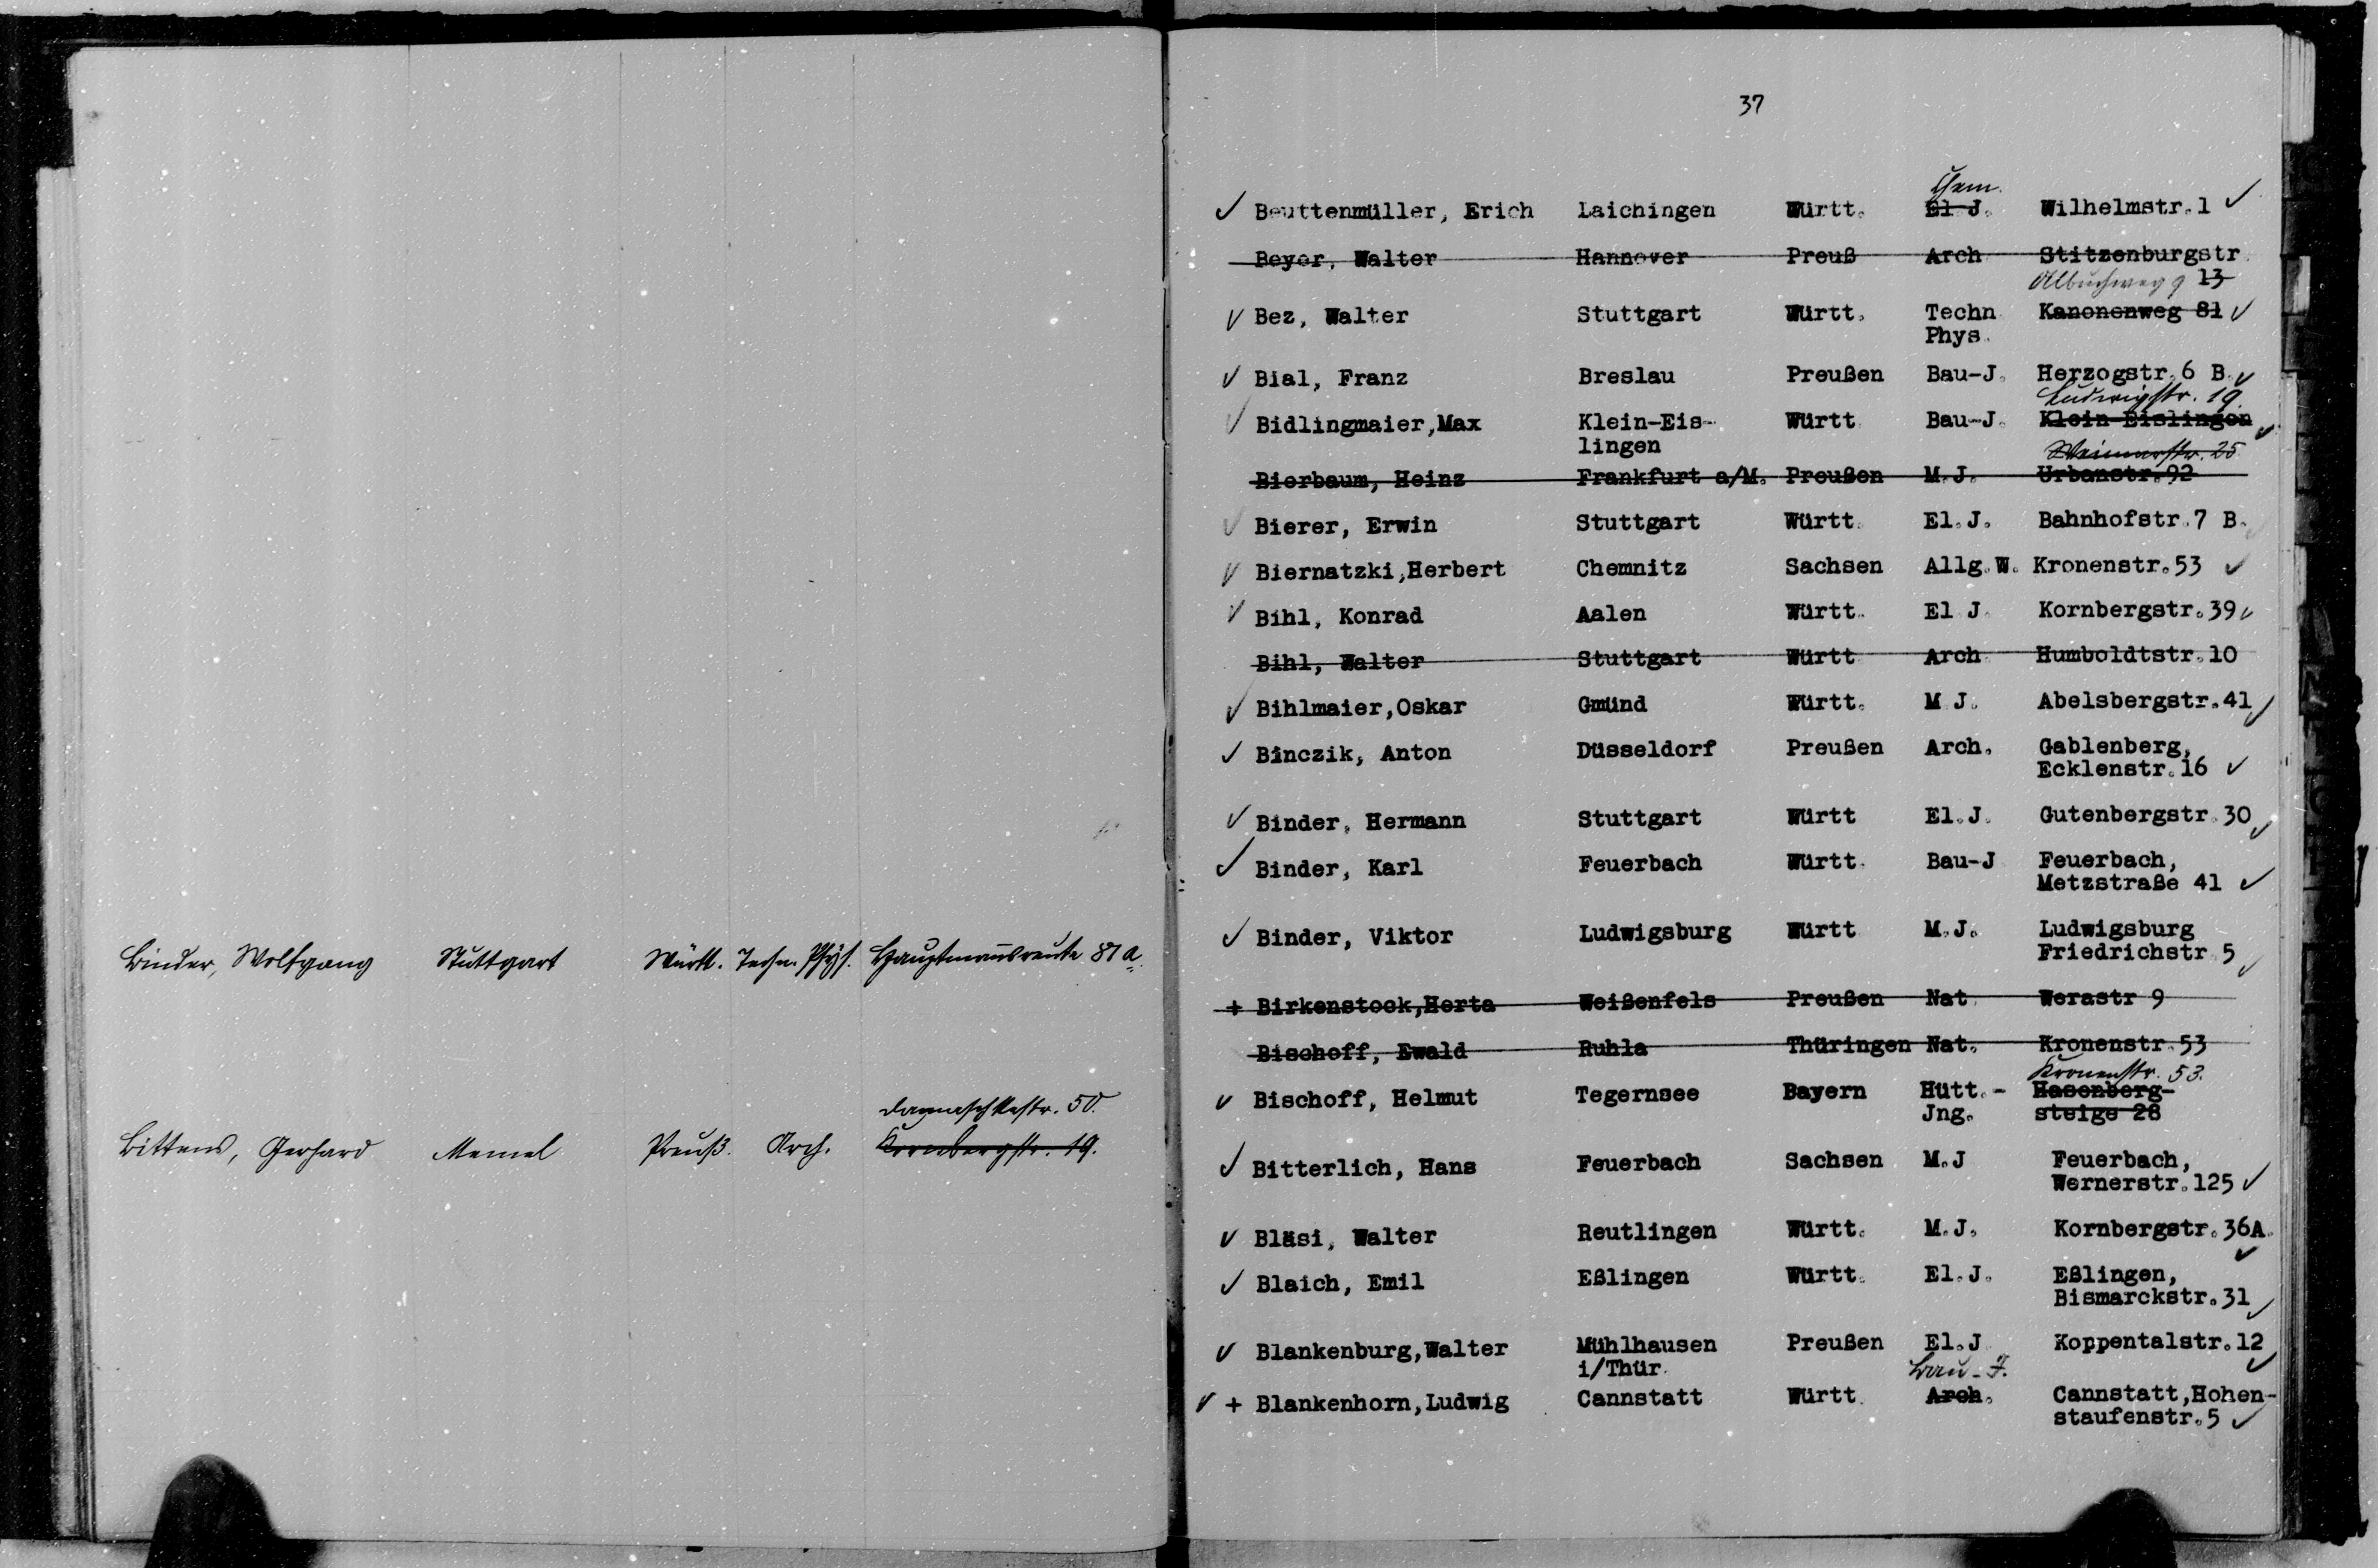 Binder, Wolfgang Stuttgart Württ. Techn. Phys. Hauptmannsreute 87 a
Damaschkestr. 50.
Bittens, Gerhard Memel Preuß. Arch. Kornbergstr. 19.
37
Chem.
✓ Beuttenmüller, Erich Laichingen Württ. El J. Wilhelmstr. 1 ✓
Beyer, Walter Hannover Preuß Arch Stitzenburgstr
13
Albuchweg 9
✓ Bez, Walter Stuttgart Württ. Techn Kanonenweg 81 ✓
Phys.
✓ Bial, Franz Breslau Preußen Bau-J. Herzogstr. 6 B. ✓
Ludwigstr. 19.
✓ Bidlingmaier, Max Klein-Eis- Württ Bau-J. Klein Eislingen ✓
lingen
Weimarstr. 25
Bierbaum, Heinz Frankfurt a/M. Preußen M.J. Urbanstr. 92
✓ Bierer, Erwin Stuttgart Württ. El.J. Bahnhofstr. 7 B. ✓
✓ Biernatzki, Herbert Chemnitz Sachsen Allg. W. Kronenstr. 53 ✓
✓ Bihl, Konrad Aalen Württ. El J. Kornbergstr. 39 ✓
Bihl, Walter Stuttgart Württ Arch Humboldtstr. 10
✓ Bihlmaier, Oskar Gmünd Württ. M J. Abelsbergstr. 41 ✓
✓ Binczik, Anton Düsseldorf Preußen Arch. Gablenberg,
Ecklenstr. 16 ✓
✓ Binder, Hermann Stuttgart Württ El.J. Gutenbergstr. 30 ✓
✓ Binder, Karl Feuerbach Württ. Bau-J Feuerbach,
Metzstraße 41 ✓
✓ Binder, Viktor Ludwigsburg Württ M.J. Ludwigsburg
Friedrichstr. 5 ✓
+ Birkenstock, Herta Weißenfels Preußen Nat Werastr 9
Bischoff, Ewald Ruhla Thüringen Nat. Kronenstr. 53
Kronenstr. 53.
✓ Bischoff, Helmut Tegernsee Bayern Hütt.- Hasenberg-
Jng. steige 28
✓ Bitterlich, Hans Feuerbach Sachsen M.J Feuerbach,
Wernerstr. 125 ✓
✓ Bläsi, Walter Reutlingen Württ. M.J. Kornbergstr. 36A.
✓
✓ Blaich, Emil Eßlingen Württ. El.J. Eßlingen,
Bismarckstr. 31 ✓
✓ Blankenburg, Walter Mühlhausen Preußen El.J Koppentalstr. 12
i/Thür. ✓
Bau-J.
✓ + Blankenhorn, Ludwig Cannstatt Württ. Arch. Cannstatt, Hohen-
staufenstr. 5 ✓